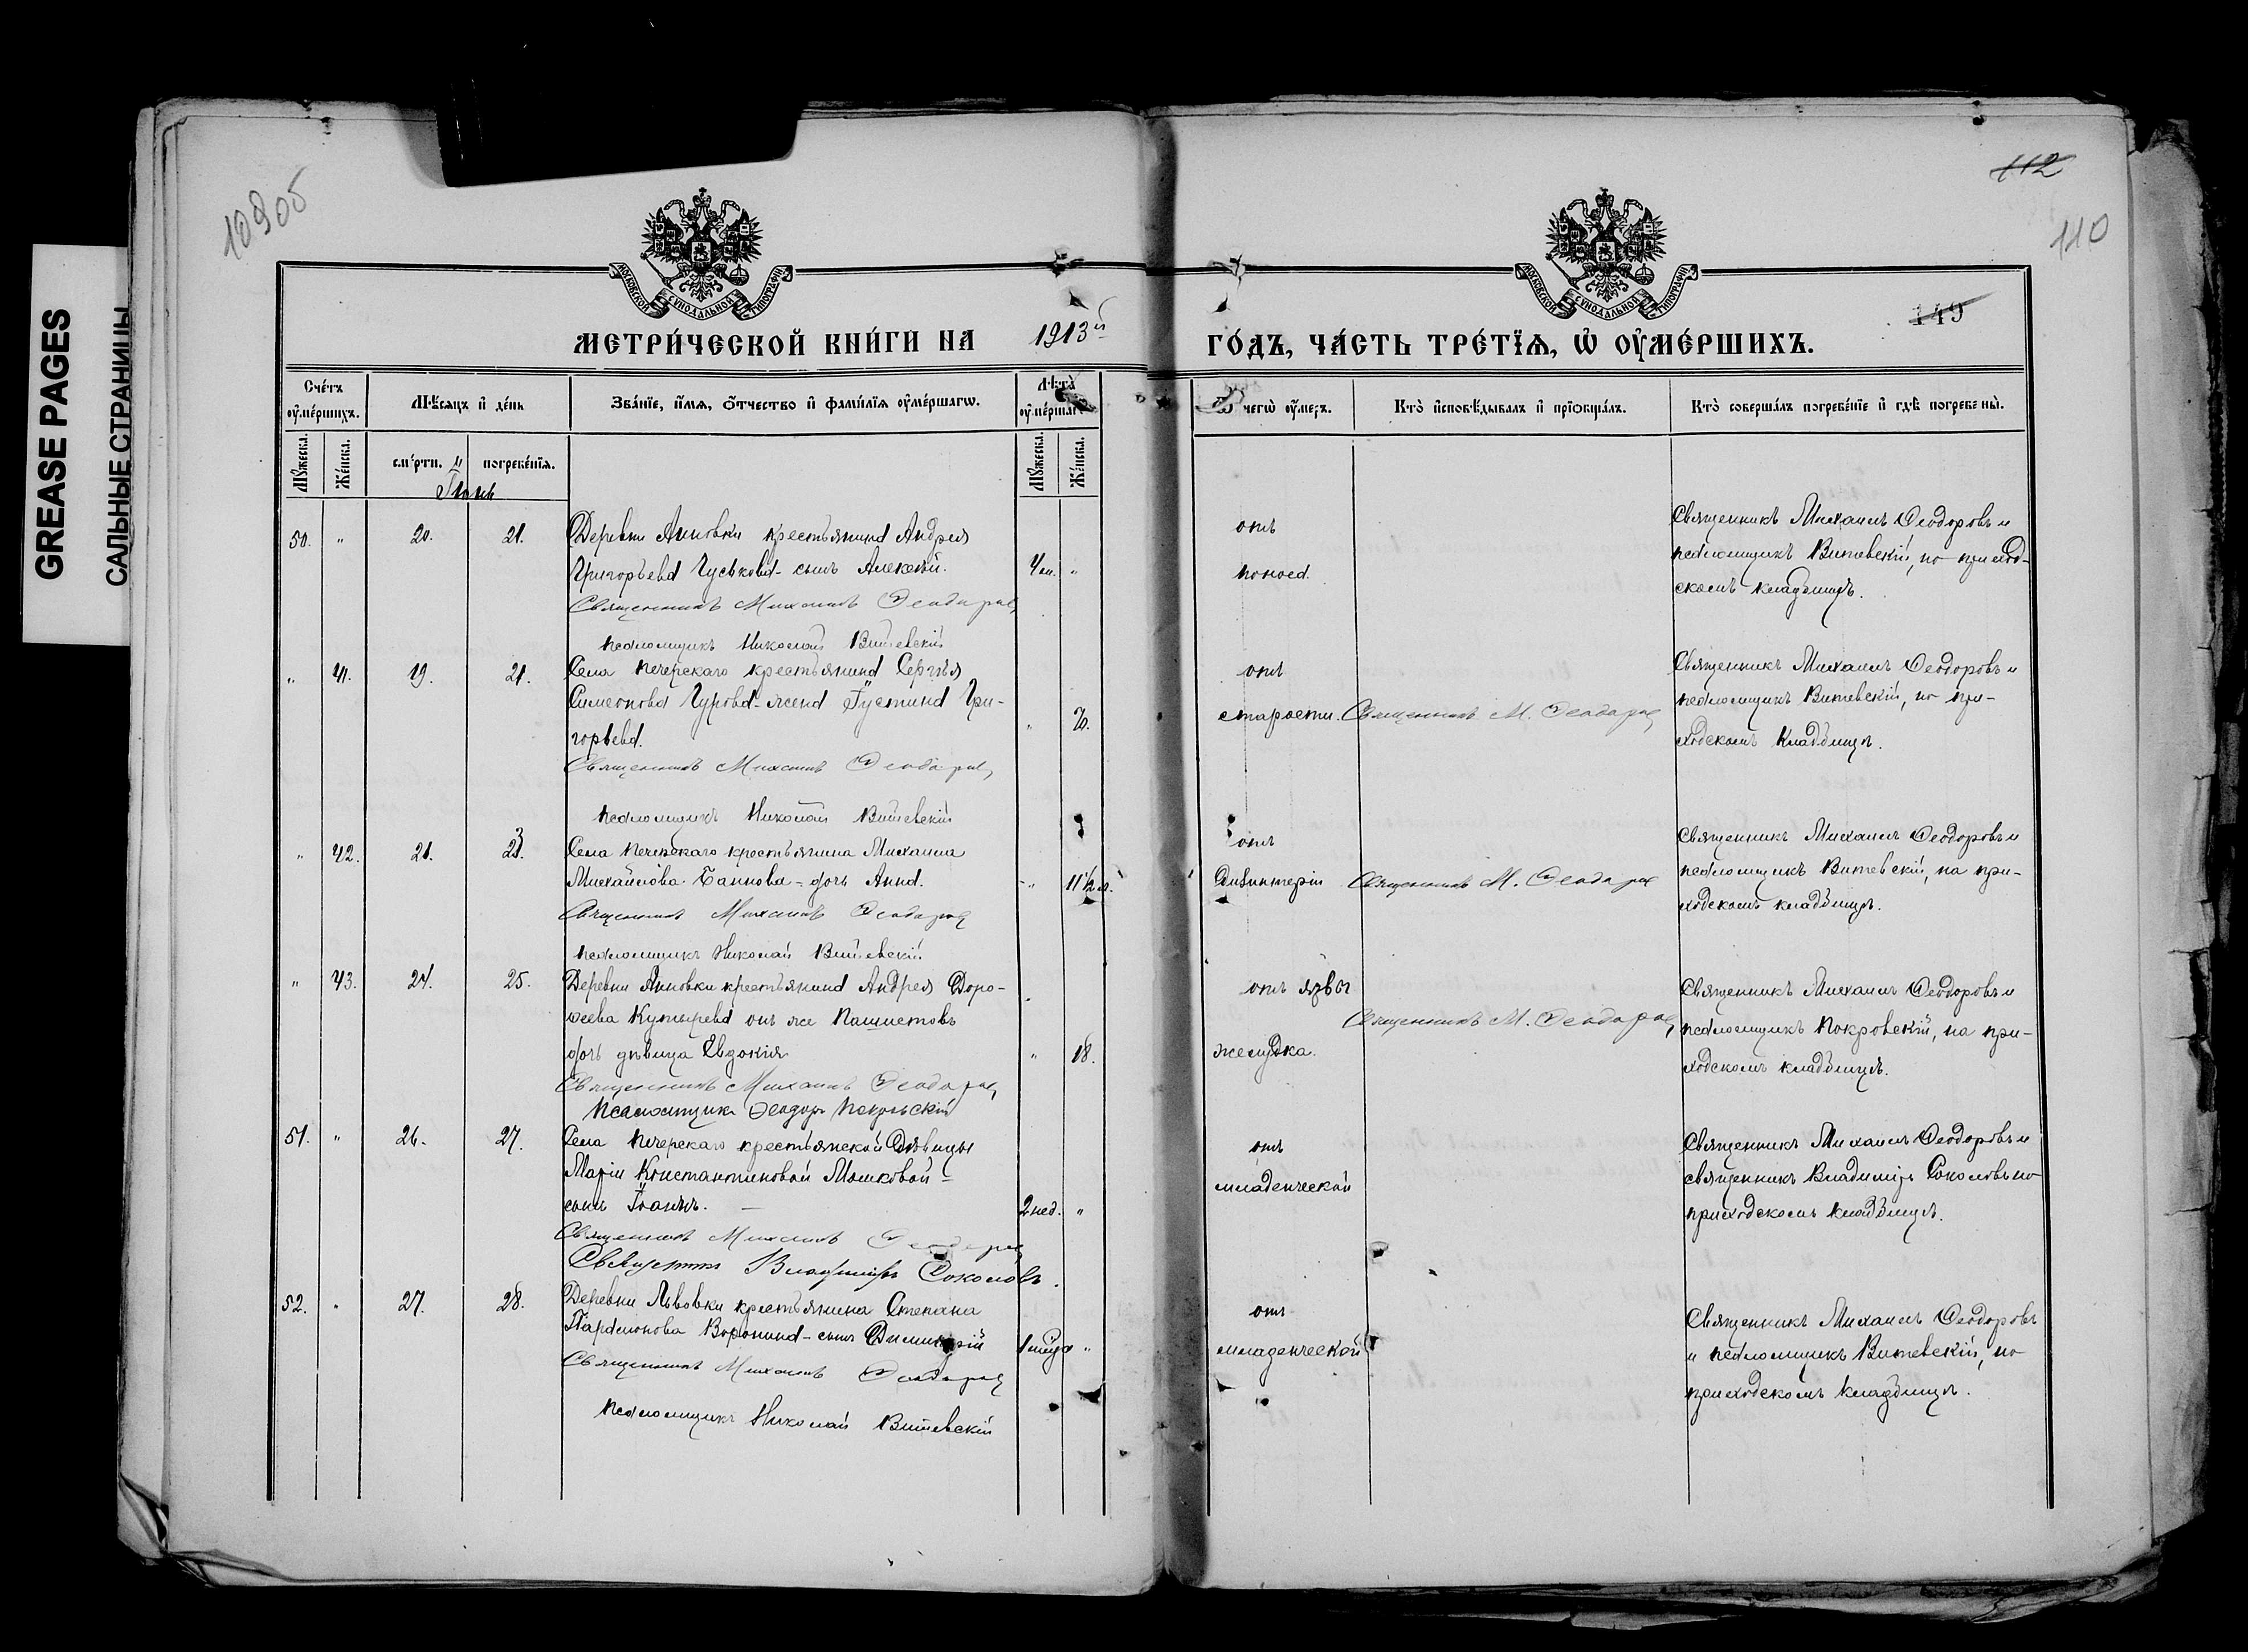 GREASE PAGES
САЛЬНЫЕ СТРАНИЦЫ
109об
112
110
149
МОСКОВСКОЙ СУНОДАЛЬНОЙ ТИПОГРАФІИ
МОСКОВСКОЙ СУНОДАЛЬНОЙ ТИПОГРАФІИ
МЕТРИ́ЧЕСКОЙ КНИ́ГИ НА 1913й ГО́ДЪ, ЧА́СТЬ ТРЕ́ТЇѦ, Ѡ ОУ҆МЕ́РШИХЪ.
Сче́тъ оу҆ме́ршихъ.
Мѣ́сяцъ и҆ де́нь
Зва́нїе, и҆́мѧ, ѻ҆́тчество и҆ фами́лїѧ оу҆ме́ршагѡ.
Лѣ́та оу҆ме́ршагѡ
Ѿ чегѡ̀ оу҆́меръ.
Кто̀ и҆сповѣ́дывалъ и҆ прїѡбща́лъ.
Кто̀ соверша́лъ погребе́нїе и҆ гдѣ̀ погребены̀.
Мꙋ́жеска.
Же́нска.
сме́рти.
погребе́нїѧ.
Мꙋ́жеска.
Же́нска.
Іюнь
50. " 20. 21. Деревни Анновки крестьянина Андрея
Григорьева Гуськова - сынъ Алексѣй. 4 м. "
Священникъ Михаилъ Ѳеодоровъ
псаломщикъ Николай Витевскій
отъ
поноса.
Священникъ Михаилъ Ѳеодоровъ и
псаломщикъ Витевскій, на приход-
скомъ кладбищѣ.
" 41. 19. 21. Села Печерскаго крестьянина Сергѣя
Симеонова Гурова - жена Іустина Гри-
горьева. " 70.
Священникъ Михаилъ Ѳеодоровъ
псаломщикъ Николай Витевскій
отъ
старости. Священникъ М. Ѳеодоровъ
Священникъ Михаилъ Ѳеодоровъ и
псаломщикъ Витевскій, на при-
ходскомъ кладбищѣ.
" 42. 21. 23. Села Печерскаго крестьянина Михаила
Михайлова Баннова - дочь Анна. " 11½ л.
Священникъ Михаилъ Ѳеодоровъ
псаломщикъ Николай Витевскій
отъ
Дизинтеріи Священникъ М. Ѳеодоровъ
Священникъ Михаилъ Ѳеодоровъ и
псаломщикъ Витевскій, на при-
ходскомъ кладбищѣ.
" 43. 24. 25. Деревни Анновки крестьянина Андрея Доро-
ѳеева Кутырева онъ же
дочь дѣвица Евдокія " 18.
Священникъ Михаилъ Ѳеодоровъ
Псаломщикъ Ѳеодоръ Покровскій
отъ язвы
желудка. Священникъ М. Ѳеодоровъ
Священникъ Михаилъ Ѳеодоровъ и
псаломщикъ Покровскій, на при-
ходскомъ кладбищѣ.
51. " 26. 27. Села Печерскаго крестьянской дѣвицы
Маріи Константиновой Мошковой -
сынъ Іоаннъ. 2 нед. "
Священникъ Михаилъ Ѳеодоровъ
Священникъ Владиміръ Соколовъ.
отъ
младенческой
Священникъ Михаилъ Ѳеодоровъ и
священникъ Владиміръ Соколовъ на
приходскомъ кладбищѣ.
52. " 27. 28. Деревни Львовки крестьянина Степана
Парѳенова Воронина - сынъ Димитрій "
Священникъ Михаилъ Ѳеодоровъ
псаломщикъ Николай Витевскій
отъ
младенческой
Священникъ Михаилъ Ѳеодоровъ
и псаломщикъ Витевскій, на
приходскомъ кладбищѣ.